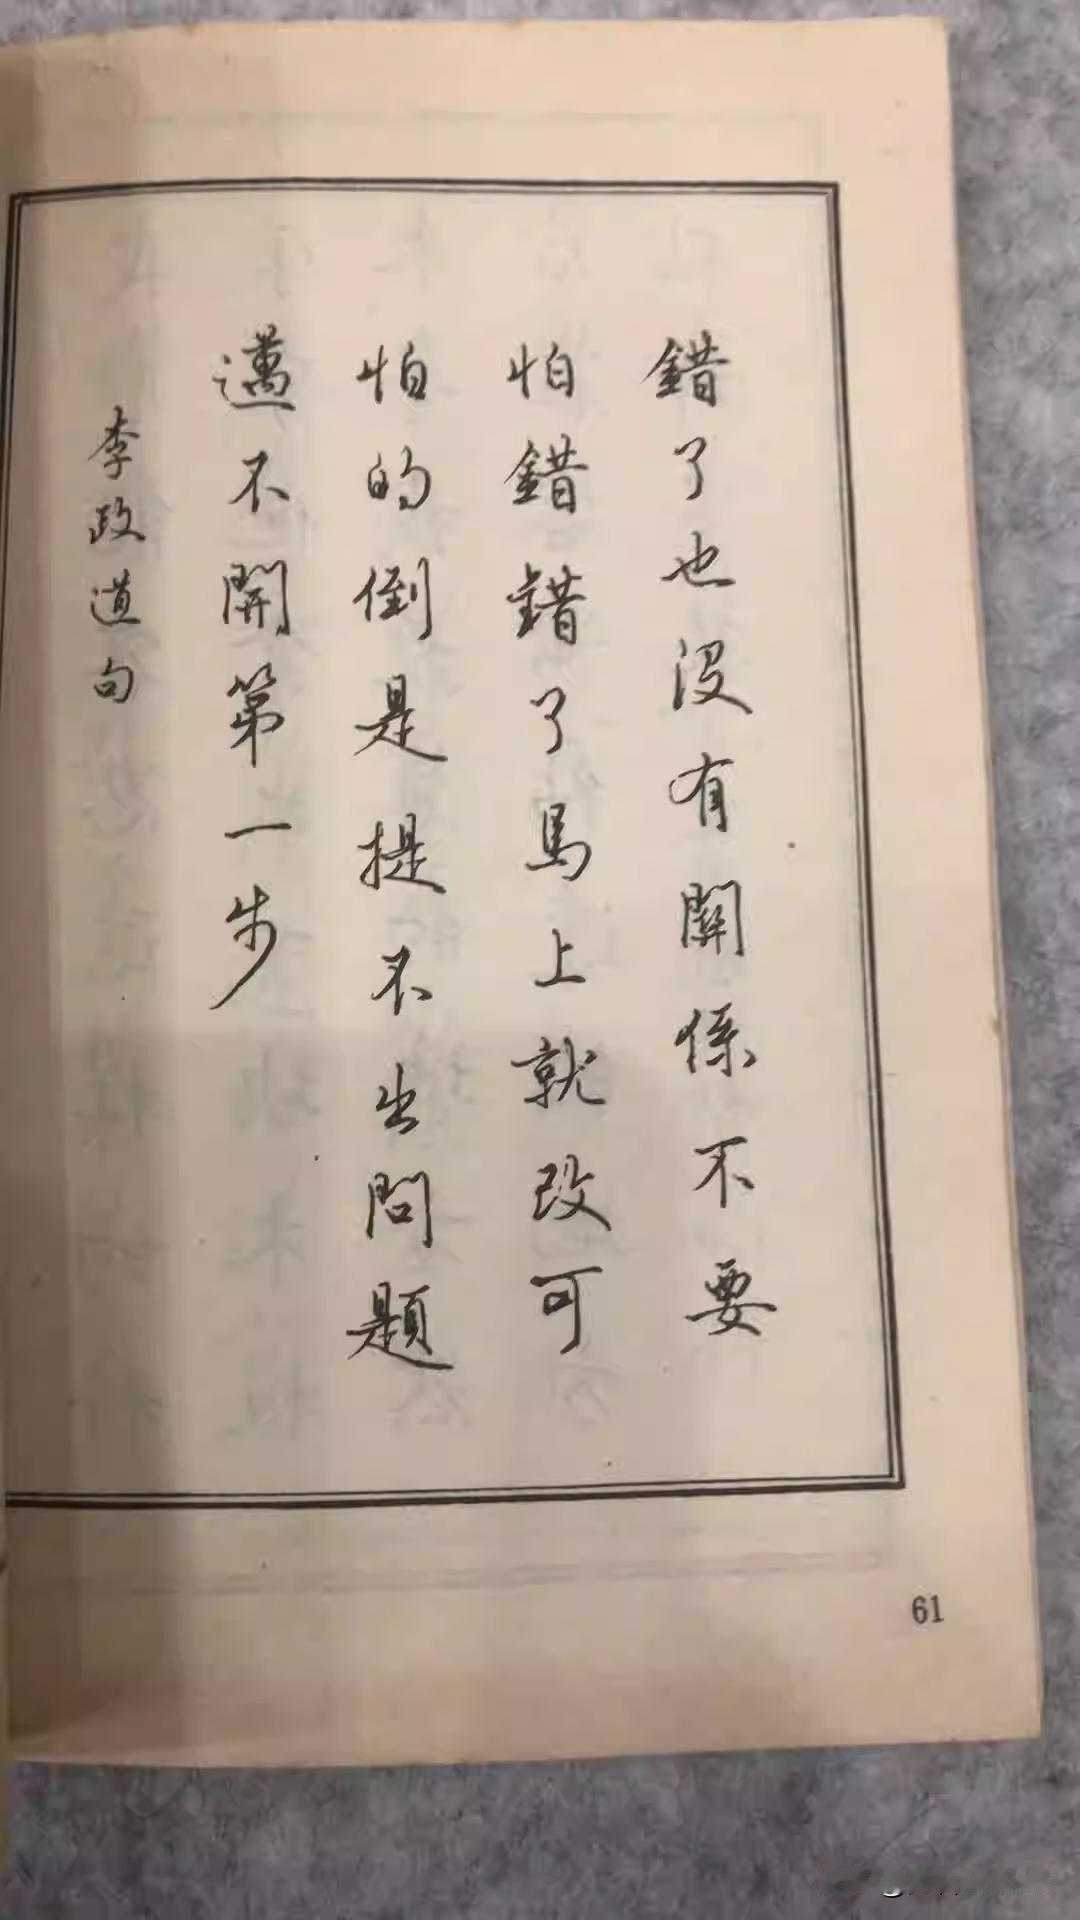 錯了也沒有關係不要
怕錯錯了馬上就改可
怕的倒是提不出問題
邁不開第一步
李政道句
61